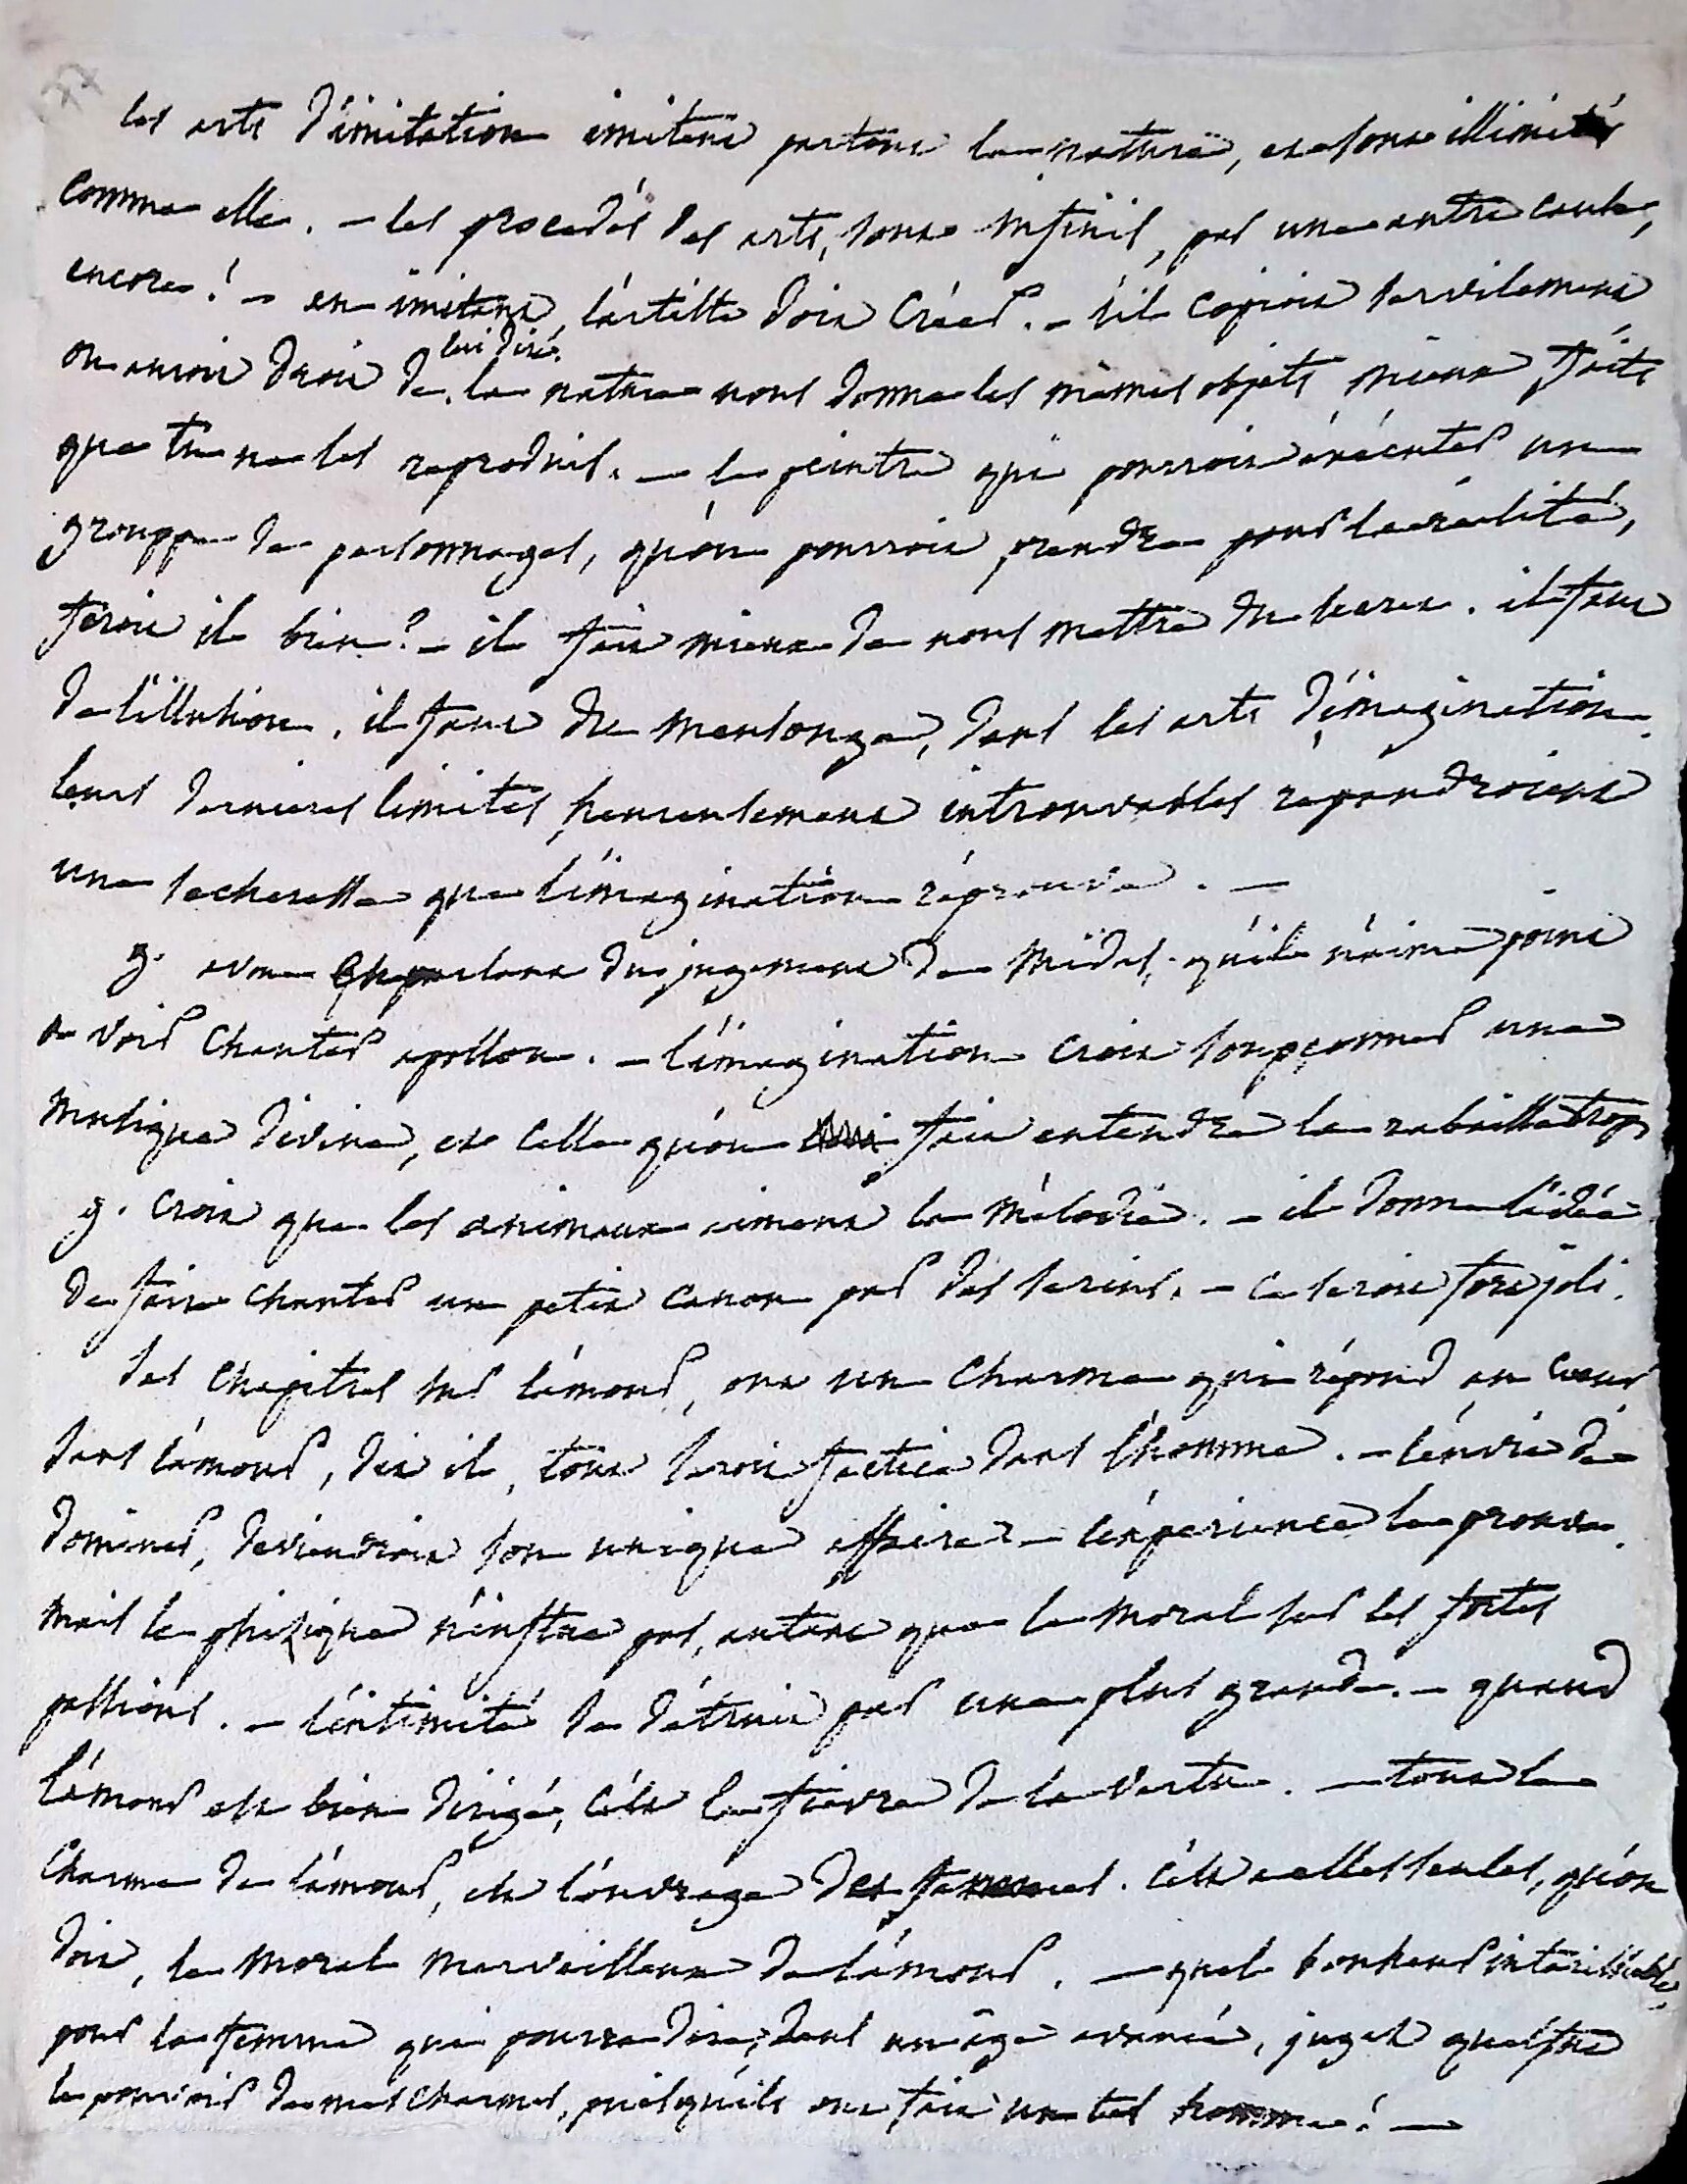 les arts d'imitation imitent partout la nature, et sont illimités
comme elle. - les procedés des arts, sont infinis, par une autre cause,
encore! - en imitant, l'artiste doit créer. - s'il copioit servilement
on auroit droit de lui dire. la nature nous donne les mêmes objets mieux faits
que tu ne les reproduis. - le peintre qui pourroit éxécuter un
grouppe de personnages, qu'on pourroit prendre pour la réalité,
feroit il bien? - il fait mieux de nous mettre du secret. il faut
de l'illusion, il faut du mensonge, dans les arts d'imagination.
leurs dernieres limites, heureusement introuvables repandroient
une secheresse que l'imagination réprouve. -
g. avoue parlant du jugement de Midas, qu'il n'aime point
a voir chanter apollon. - l'imagination croit soupçonner une
musique divine, et celle qu'on fait entendre la rabaisse trop
g. croit que les animaux aiment la mélodie. - il donne l'idée
de faire chanter un petit canon par des serins. - ce seroit fort joli.
ses chapitres sur l'amour, ont un charme qui répond au coeur
sans l'amour, dit il, tout seroit factice dans l'homme. - l'envie de
dominer, deviendroit son unique affaire - l'éxperience le prouve.
mais le phisique n'influe pas, autant que le moral sur les fortes
passions. - l'intimité se détruit par une plus grande. - quand
l'amour est bien dirigé, c'est la fievre de la vertu. - tout le
charme de l'amour, est l'ouvrage des femmes. c'est a elles seules, qu'on
doit, le moral merveilleux de l'amour. - quel bonheur intarissable,
pour la femme qui pourra dire, dans un âge avancé, jugez quel fut
le pouvoir de mes charmes, puisqu'ils ont fait un tel homme! -